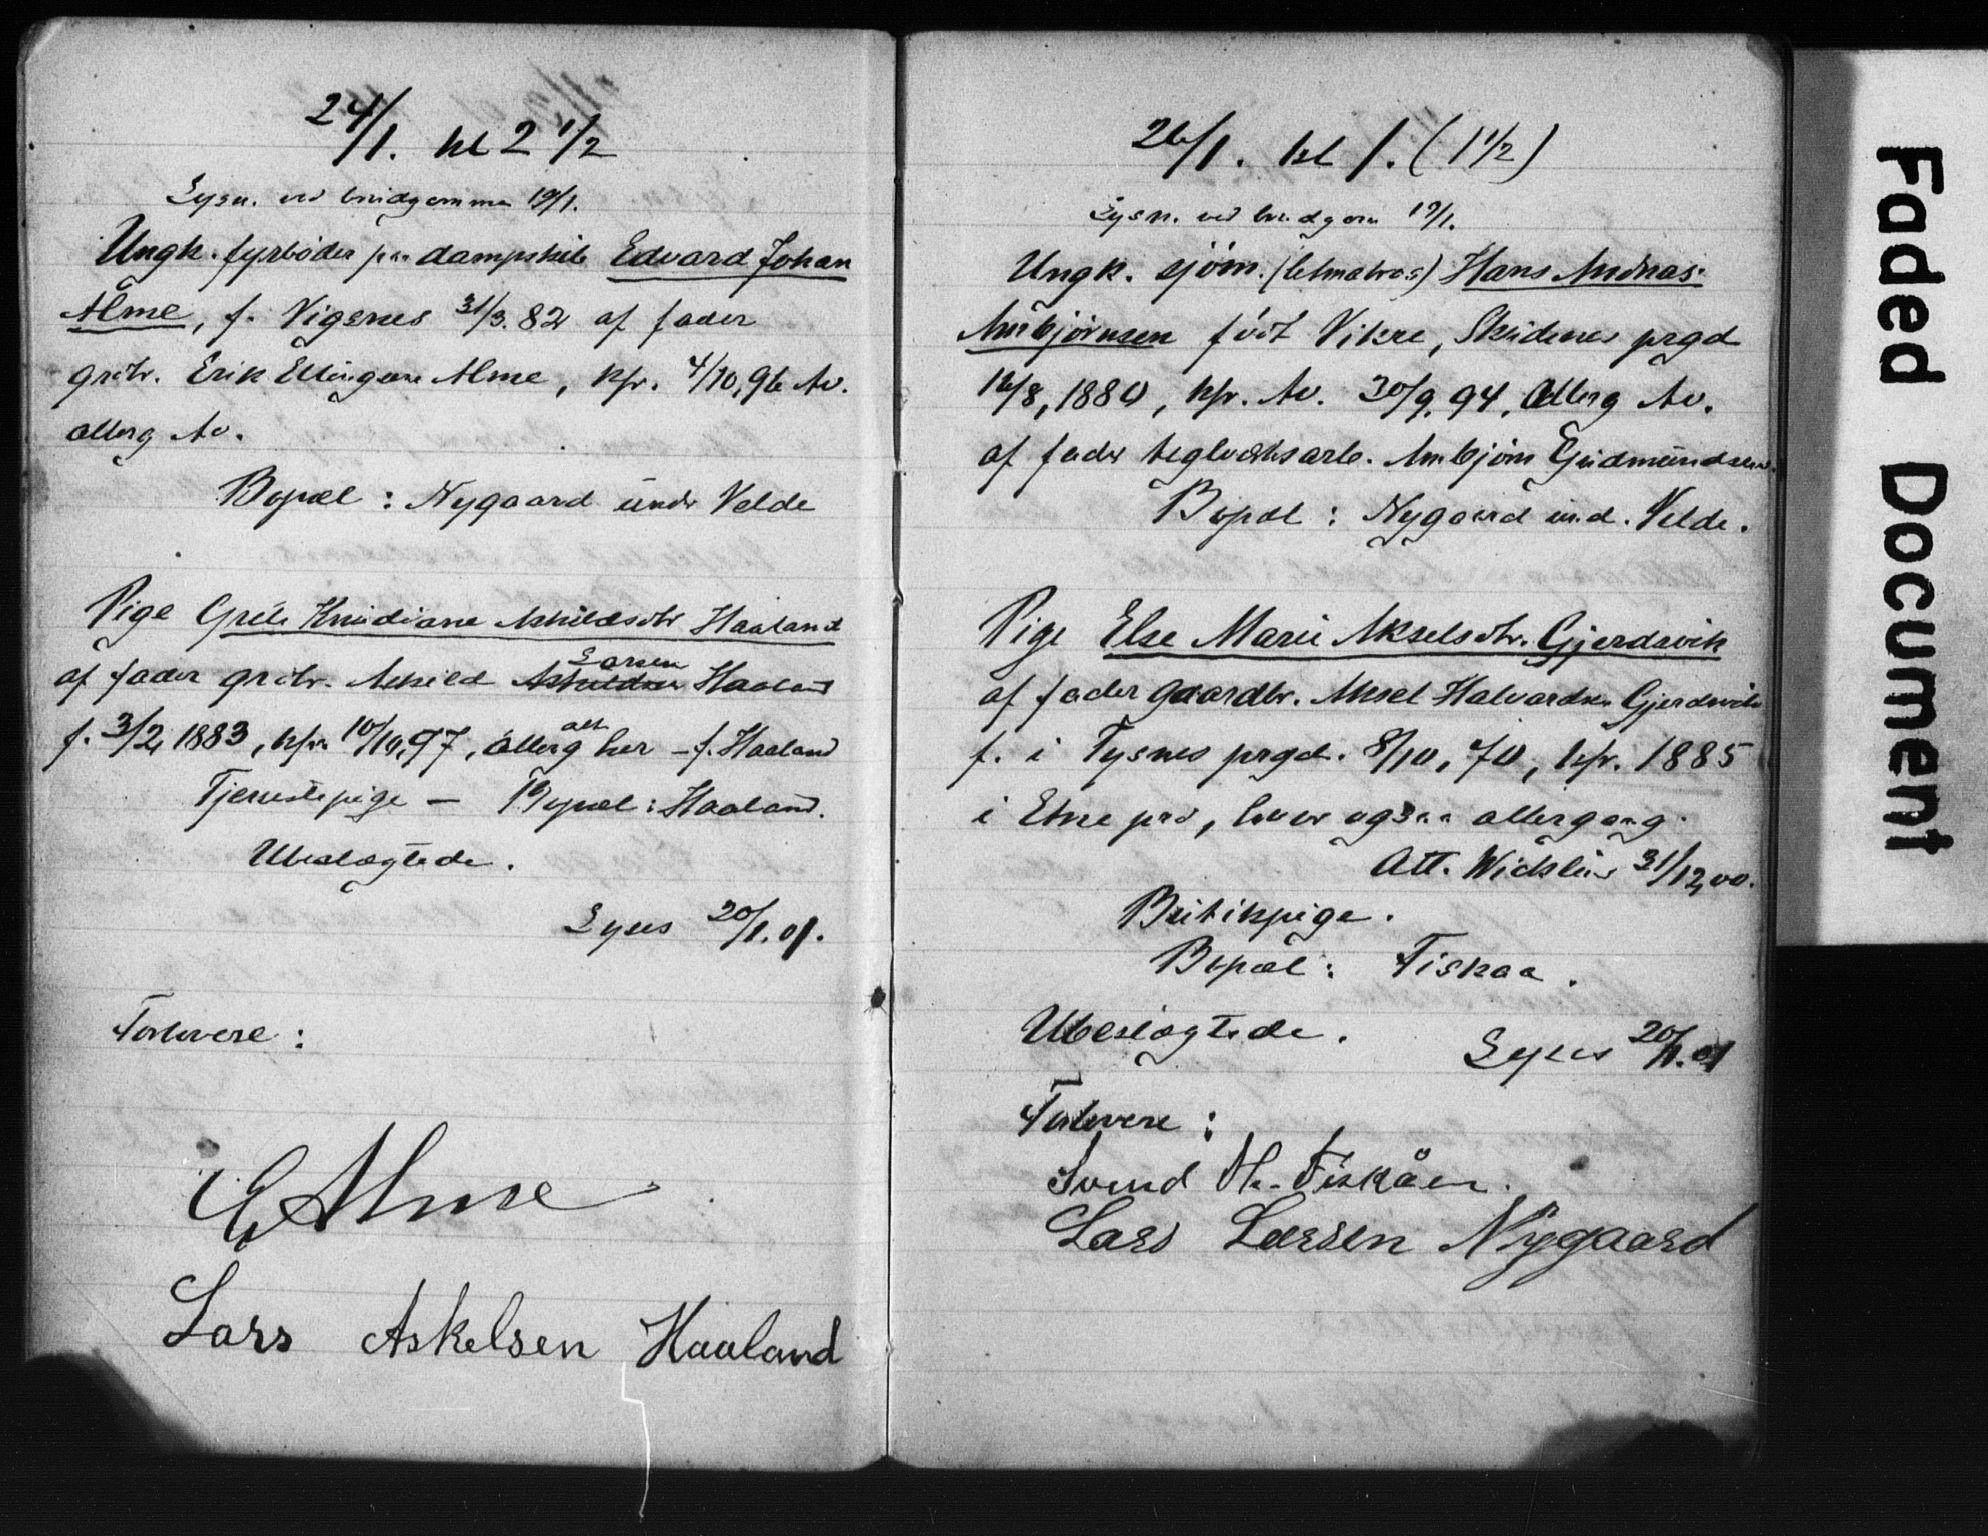 24/1. kl 2 1/2
Lysn. ved brudgommen 19/1.
Ungk. fyrbøder paa dampskib Edvard Johan
Alme, f. Vigsnes 31/3. 82 af fader
grdbr. Erik Ellingsen Alme, kfr. 4/10, 96 Av.
alterg Av.
Bopæl : Nygaard under Velde
Pige Grete Knudiane Askildsdtr Haaland
af fader grdbr. Askild Larsen Haaland
f. 3/2, 1883, kfr. 10/10, 97, alterg alt her – f. Haaland
Tjenestepige – Bopæl : Haaland.
Ubeslægtede.
Lyses 20/1. 01.
Forlovere :
E Alme
Lars Askelsen Haaland
26/1. kl 1. (1 1/2)
Lysn. ved brudgom 19/1.
Ungk. sjøm. (letmatros) Hans Andreas
Ambjørnsen født Vikre, Skudenes prgd
16/8, 1880, kfr. Av. 30/9. 94, alterg Av.
af fader teglværksarb. Ambjørn Gudmundsen
Bopæl : Nygaard und. Velde.
Pige Else Marie Akselsdtr. Gjerdsvik
af fader gaardbr. Aksel Halvardsn. Gjerdsvik
f. i Tysnes prgd. 8/10, 70, kfr. 1885
i Etne prd, hvor ogsaa altergang.
Att. 31/12, 00.
Butikpige.
Bopæl : Fiskaa.
Ubeslægtede.
Lyses 20/1. 01
Forlovere :
Svend H. Fiskåen.
Lars Larsen Nygaard
Faded Document